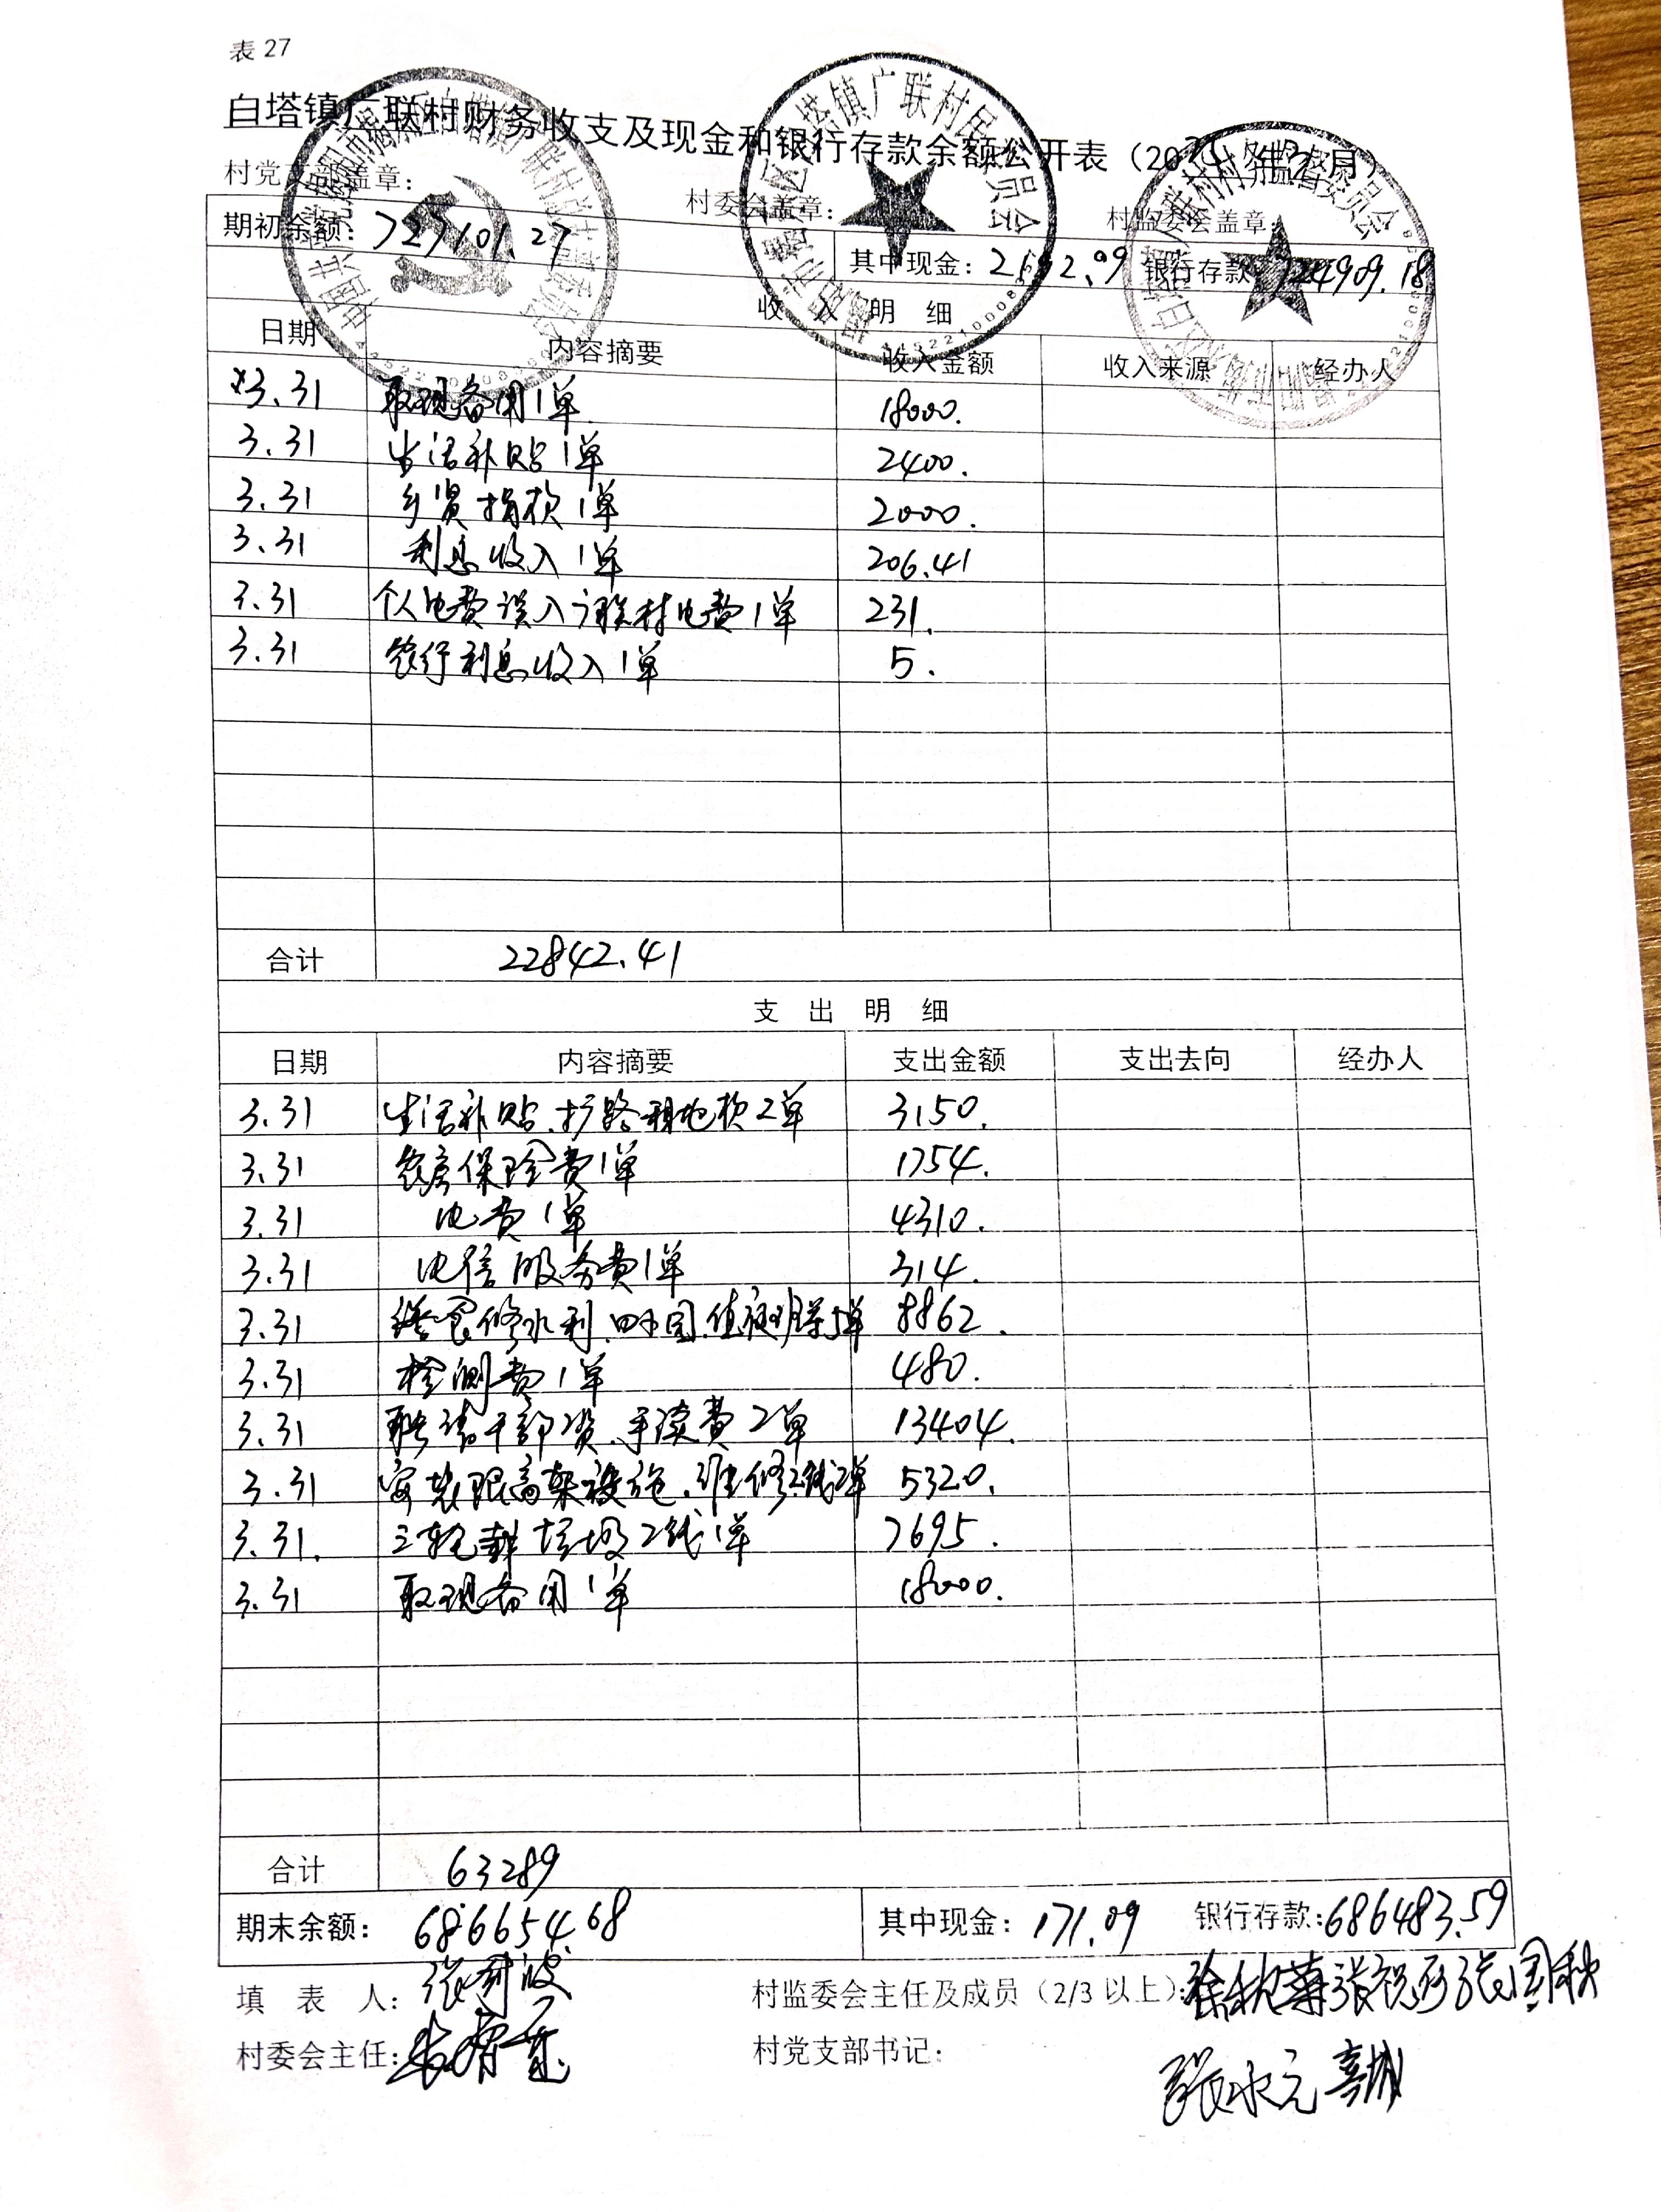 表 27
白塔镇广联村财务收支及现金和银行存款余额公开表（2025年3月）
村党支部盖章： 村委会盖章： 村监委会盖章：
期初余额：727101.27 其中现金：2192.09 银行存款：724909.18
收 入 明 细
日期 内容摘要 收入金额 收入来源 经办人
3.31 取现备用1单 18000.
3.31 生活补贴1单 2400.
3.31 乡贤捐款1单 2000.
3.31 利息收入1单 206.41
3.31 个人电费误入广联村电费1单 231.
3.31 农行利息收入1单 5.
合计 22842.41
支 出 明 细
日期 内容摘要 支出金额 支出去向 经办人
3.31 生活补贴、扩路租地款2单 3150.
3.31 农房保险费1单 1754.
3.31 电费1单 4310.
3.31 电信服务费1单 314.
3.31 修水利、田园、值夜班 5单 8862.
3.31 检测费1单 480.
3.31 聘请干部工资、手续费2单 13404.
3.31 安装限高架设施、维修工钱2单 5320.
3.31. 三轮车垃圾工钱1单 7695.
3.31 取现备用1单 18000.
合计 63289
期末余额：686654.68 其中现金：171.09 银行存款：686483.59
填 表 人： 村监委会主任及成员（2/3 以上）：
村委会主任： 村党支部书记：
张水元